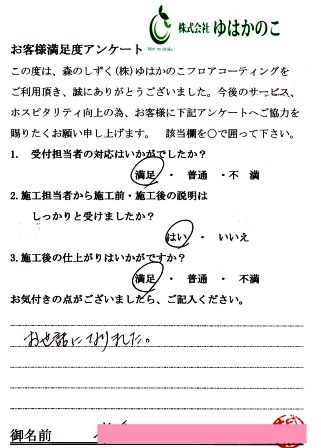 株式会社 ゆはかのこ
お客様満足度アンケート
この度は、森のしずく(株)ゆはかのこフロアコーティングを
ご利用頂き、誠にありがとうございました。今後のサービス、
ホスピタリティ向上の為、お客様に下記アンケートへご協力を
賜りたくお願い申し上げます。 該当欄を〇で囲って下さい。
1. 受付担当者の対応はいかがでしたか?
満足 ・ 普通 ・不 満
2.施工担当者から施工前・施工後の説明は
しっかりと受けましたか?
はい ・ いいえ
3.施工後の仕上がりはいかがですか?
満足 ・ 普通 ・ 不満
お気付きの点がございましたら、ご記入ください。
お世話になりました。
御名前